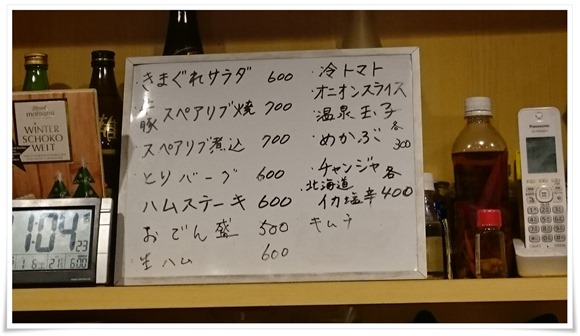 きまぐれサラダ 600
豚スペアリブ焼 700
スペアリブ煮込 700
とりバーグ 600
ハムステーキ 600
おでん盛 500
生ハム 600
冷トマト
オニオンスライス
温泉玉子
めかぶ 各300
チャンジャ 各
北海道イカ塩辛 400
キムチ
WINTER
SCHOKO
WELT
1:04 23
Panasonic